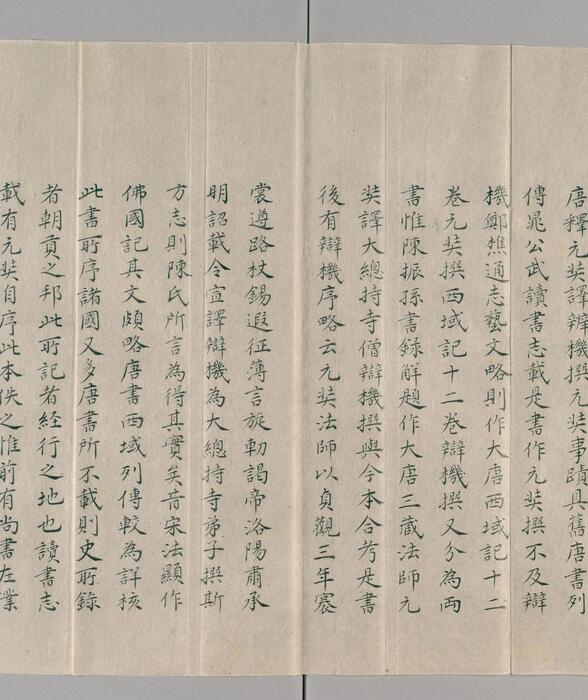 唐釋元奘譯辨機撰元奘事蹟具舊唐書列
傳晁公武讀書志載是書作元奘撰不及辯
機鄭樵通志藝文略則作大唐西域記十二
卷元奘撰西域記十二卷辯機撰又分為兩
書惟陳振孫書録解題作大唐三藏法師元
奘譯大總持寺僧辯機撰與今本合考是書
後有辯機序略云元奘法師以貞觀三年褰
裳遵路杖錫遐征薄言旋軔謁帝洛陽肅承
明詔載令宣譯辯機為大總持寺弟子撰斯
方志則陳氏所言為得其實矣昔宋法顯作
佛國記其文頗略唐書西域列傳較為詳核
此書所序諸國又多唐書所不載則史所錄
者朝貢之邦此所記者經行之地也讀書志
載有元奘自序此本佚之惟前有尚書左業